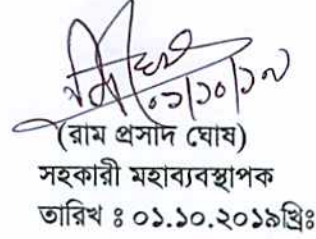 ০১/১০/১৯
(রাম প্রসাদ ঘোষ)
সহকারী মহাব্যবস্থাপক
তারিখ ঃ ০১.১০.২০১৯খ্রিঃ